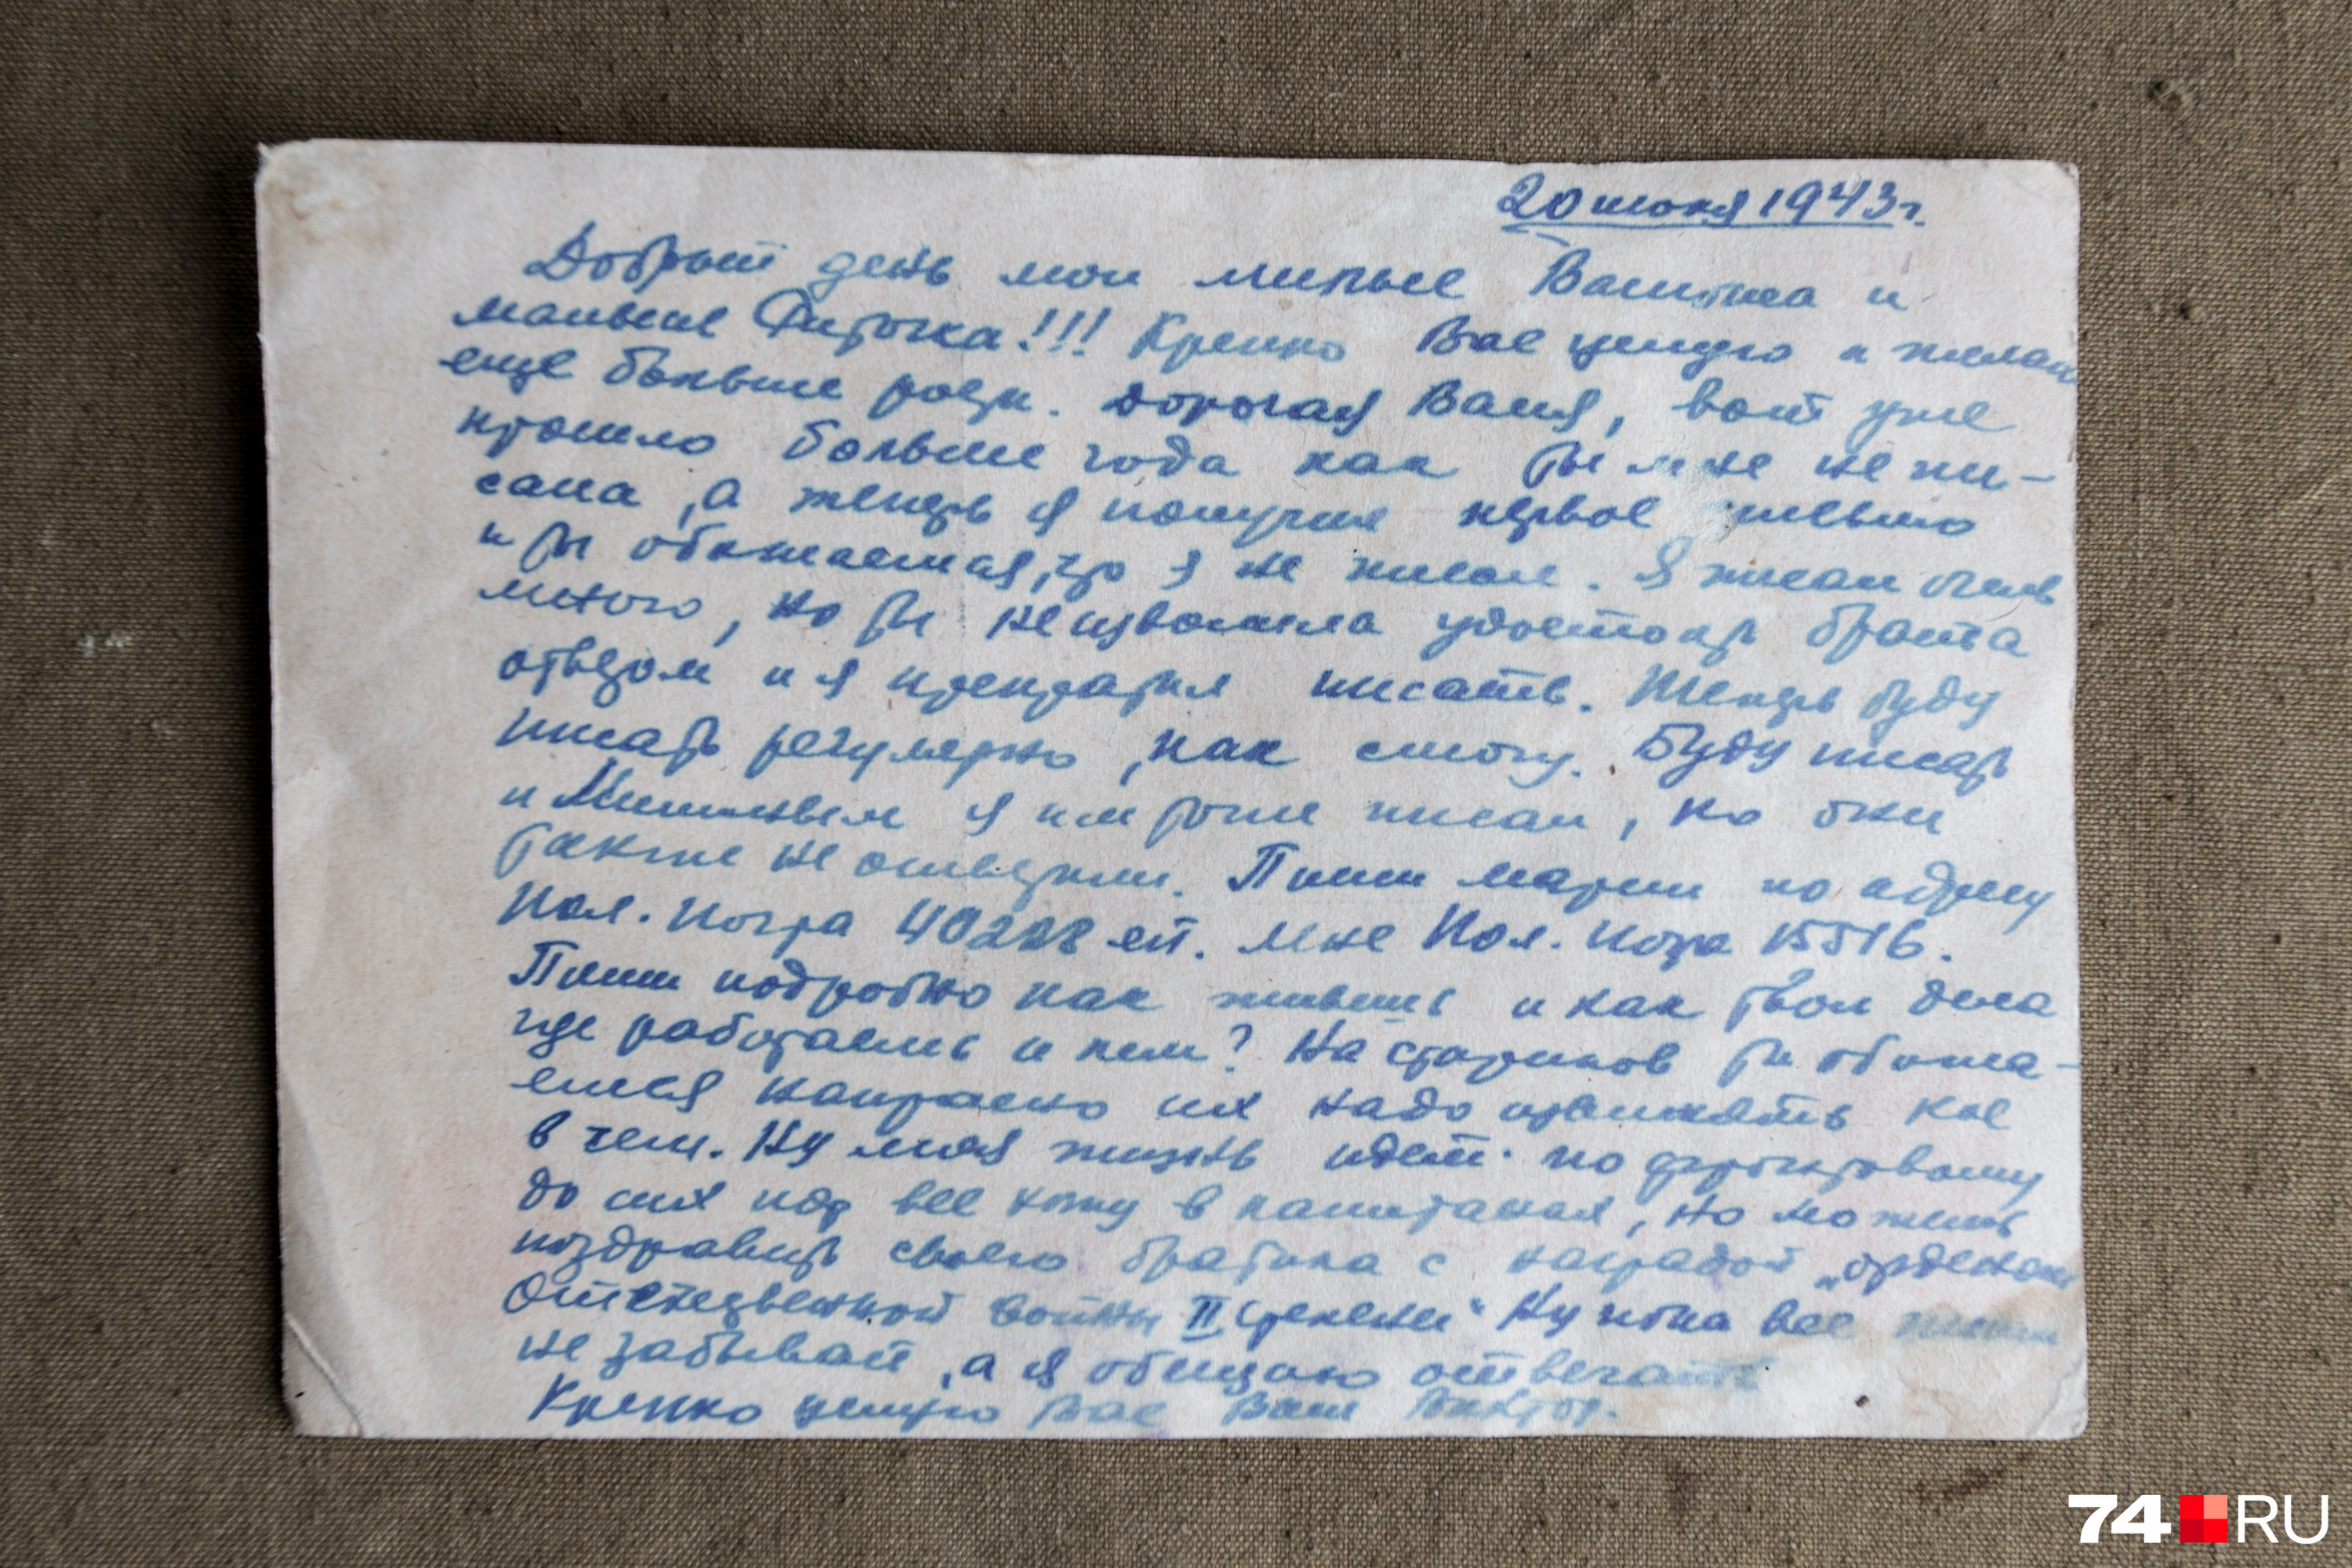 20 июня 1943 г.
Добрый день мои милые Валюша и
маленькая !!! Крепко Вас целую и желаю
еще больше роди. Дорогая Валя, вот уже
прошло больше года как ты мне не пи-
сала, а теперь я получил первое письмо
и ты обижаешся, что я не писал. Я писал очень
много, но ты не изволила удостоить брата
ответом и я прекратил писать. Теперь буду
писать регулярно, как смогу. Буду писать
и я им тоже писал, но они
также не ответили. Пиши Марии по адресу
Пол. почта 40228 еп. Мне Пол. почта 15516.
Пиши подробно как живешь и как твои дела
где работаешь и кем? На стариков ты обижа-
ешся напрасно их надо извинять кое
в чем. Ну моя жизнь идет по фронтовому
до сих пор все хожу в капитанах, но можешь
поздравить своего братика с наградой „орденом
Отечественной войны II степени" Ну пока все пиши
не забывай, а я обещаю отвечать
Крепко целую Вас Ваш Виктор.
74 RU